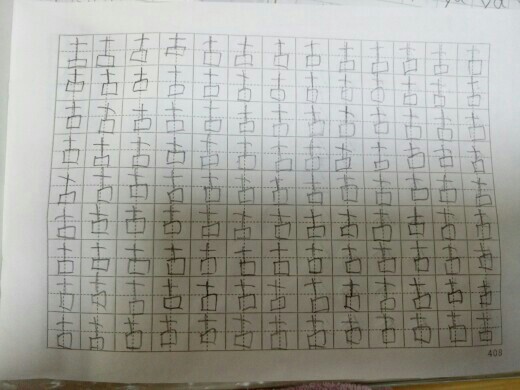 古古古古古古古古古古古古古
古古古古古古古古古古古古古
古古古古古古古古古古古古古
古古古古古古古古古古古古古
古古古古古古古古古古古古古
古古古古古古古古古古古古古
古古古古古古古古古古古古古
古古古古古古古古古古古古古
古古古古古古古古古古古古古
408